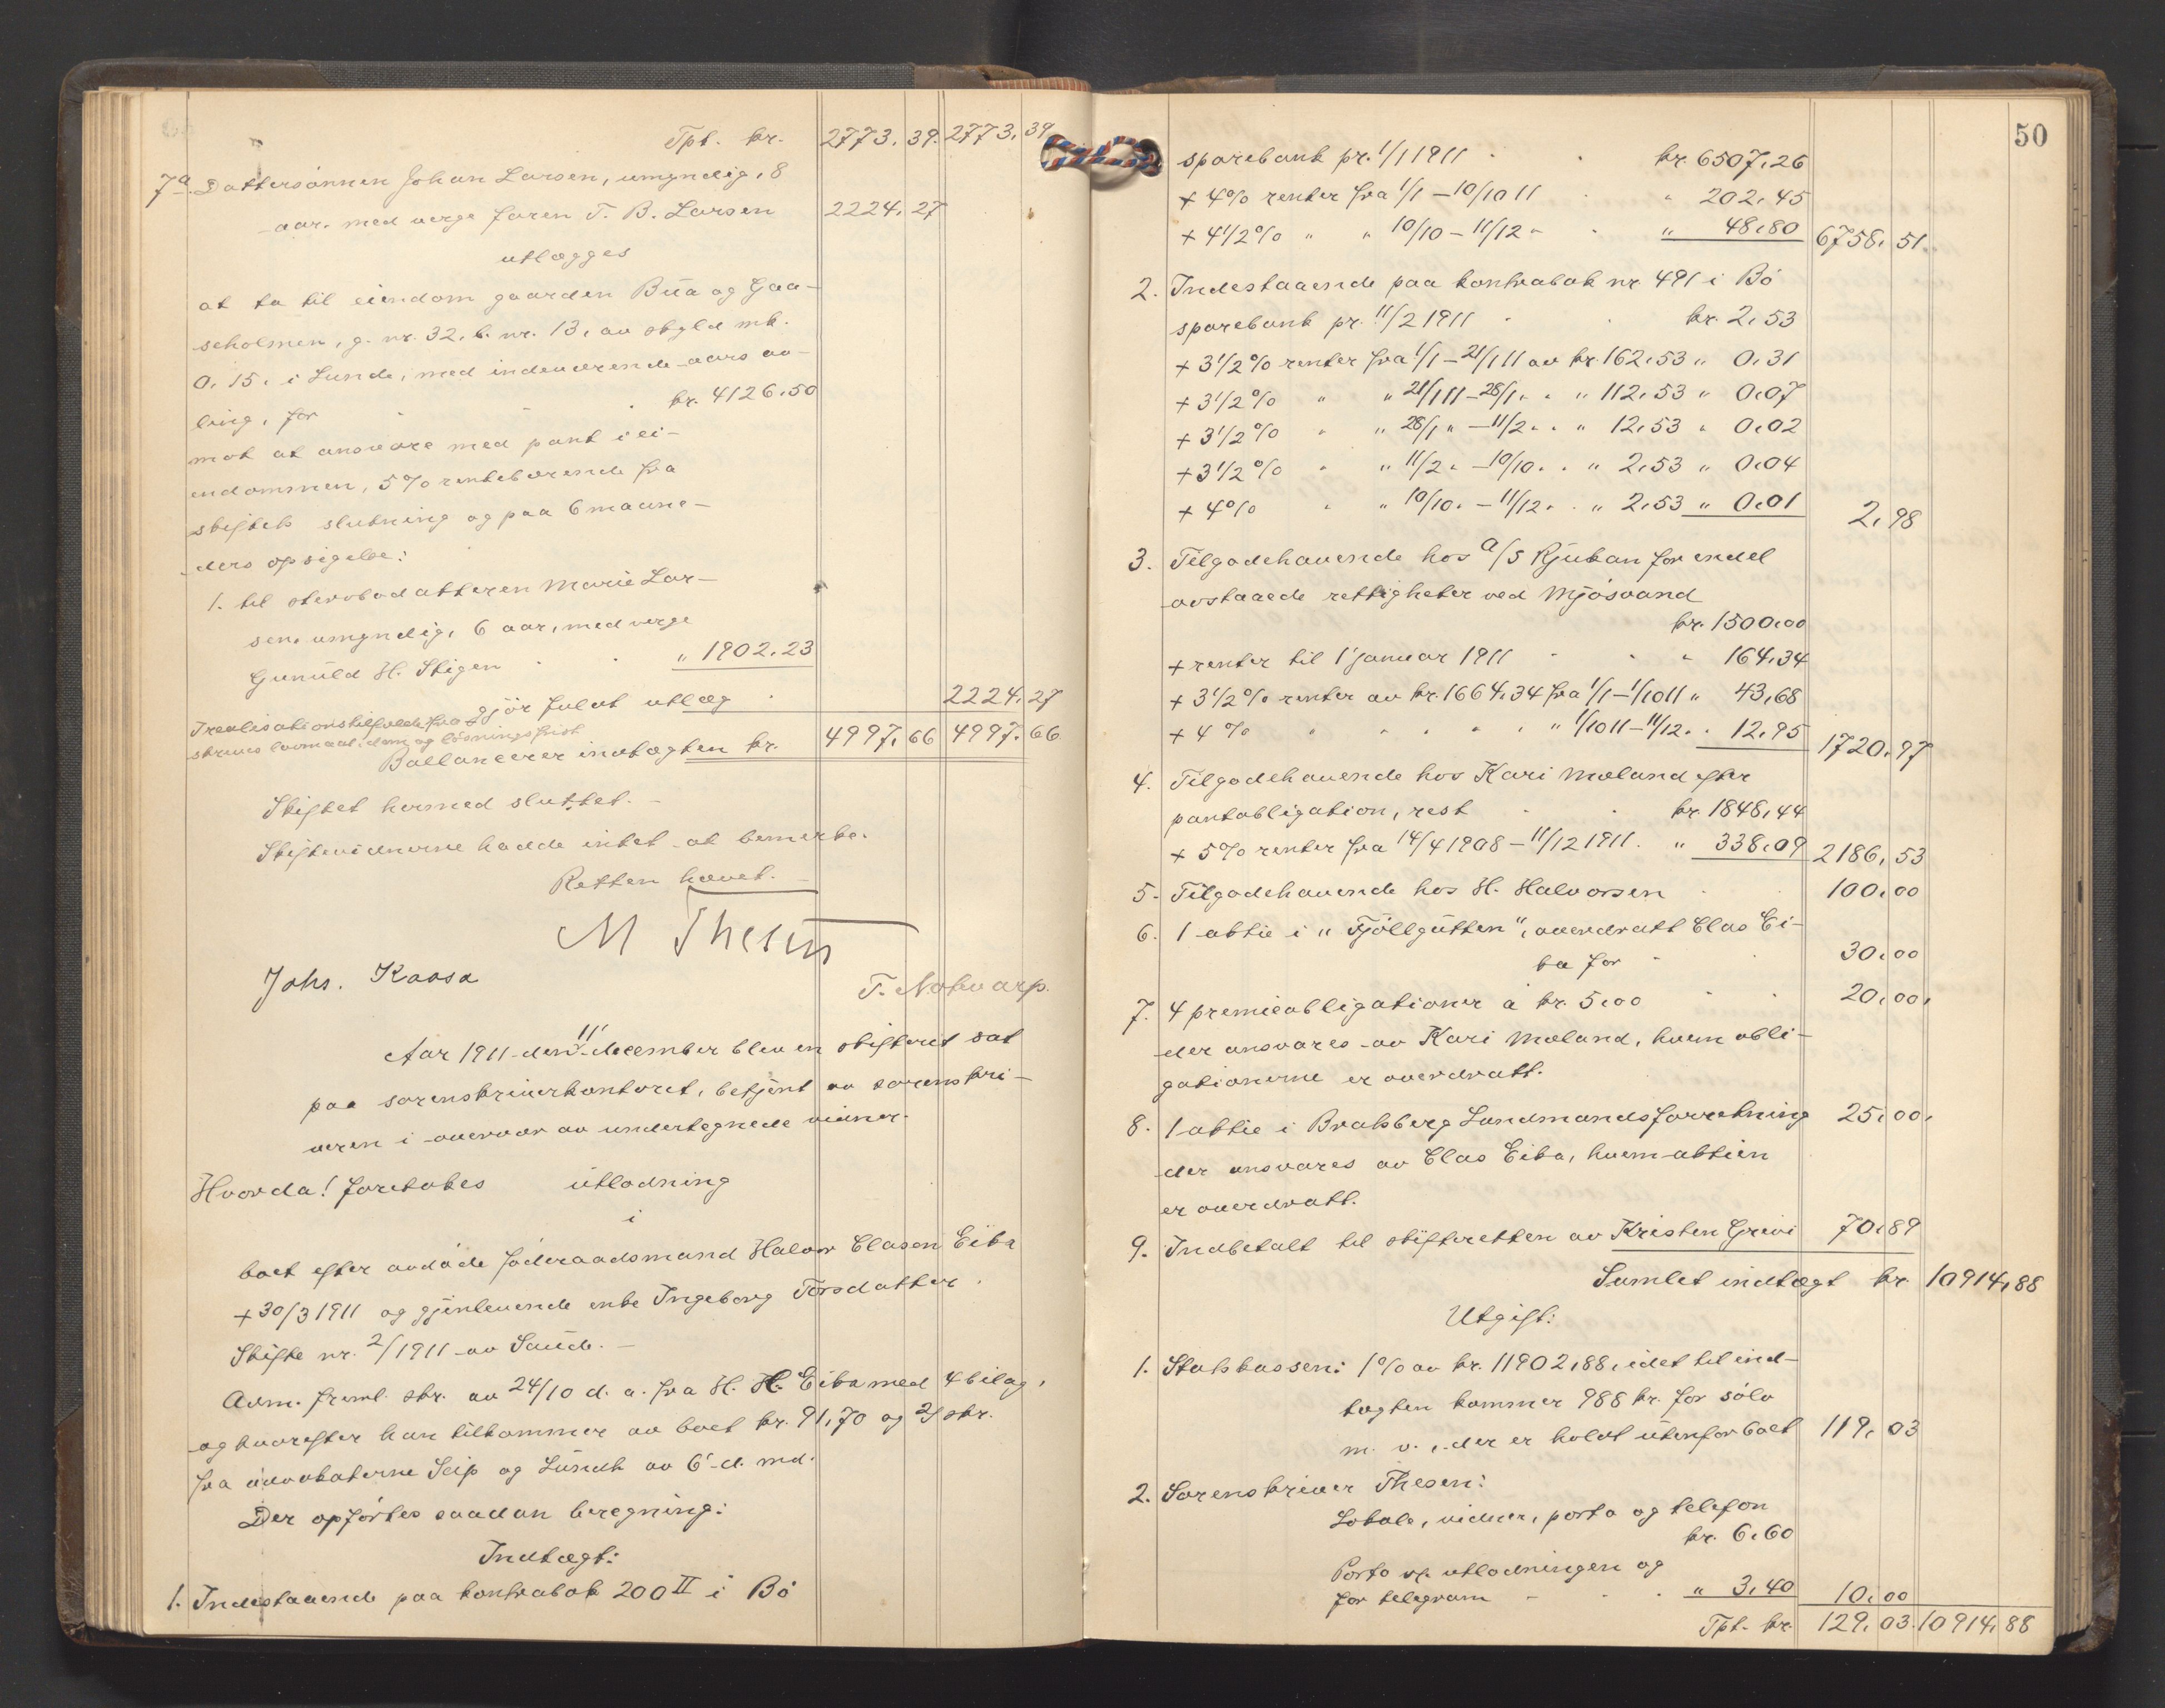 Tpt. kr. 2773,39. 2773,39
7a. Dattersønnen Johan Larsen, umyndig, 8
aar, med verge faren T. B. Larsen 2224,27
utlægges
at ta til eiendom gaarden Bua og Gaa-
seholmen, g. nr. 32, b. nr. 13, av skyld mk.
0,15, i Lunde, med indeværende aars av-
ling, for kr. 4126,50
mot at ansvare med pant i ei-
endommen, 5% rentebærende fra
skiftets slutning og paa 6 maane-
ders opsigelse:
1. til stervbodatteren Marie Lar-
sen, umyndig, 6 aar, med verge
Gunuld H. Stigen " 1902,23
gjør fuldt utlæg 2224,27
I realisationstilfælde fra-
skrives lovmaal, dom og løsningsfrist
Ballancerer indtægten kr. 4997,66 4997,66
Skiftet hermed sluttet. -
Skiftevidnerne hadde intet at bemerke.
Retten hævet. -
M Thesen
Johs. Kaasa T. Nakvarp.
Aar 1911 den 11' december blev en skifteret sat
paa sorenskriverkontoret, betjent av sorenskri-
veren i overvær av undertegnede vidner.
Hvorda! foretokes utlodning
i
boet efter avdøde føderaadsmand Halvor Clasen Eika
+ 30/3 1911 og gjenlevende enke Ingeborg Torsdatter.
Skifte nr. 2/1911 av Saude. -
Adm. freml. skr. av 24/10 d. a. fra H. H. Eika med 4 bilag,
og hvorefter han tilkommer av boet kr. 91,70 og 2) skr.
fra advokaterne Seip og Lundh av 6' d. md.
Der opførtes saadan beregning:
Indtægt:
1. Indestaaende paa kontrabok 200 II i Bø
50
sparebank pr. 1/1 1911 kr. 6507,26
+ 4% renter fra 1/1 - 10/10 11 " 202,45
+ 4 1/2% " " 10/10 - 11/12 " " 48,80 6758,51.
2. Indestaaende paa kontrabok nr. 491 i Bø
sparebank pr. 11/2 1911 kr. 2,53
+ 3 1/2% renter fra 1/1 - 21/1 11 av kr. 162,53 " 0,31
+ 3 1/2% " " 21/1 11 - 28/1 " " " 112,53 " 0,07
+ 3 1/2% " " 28/1 " - 11/2 " " " 12,53 " 0,02
+ 3 1/2% " " 11/2 " - 10/10 " " 2,53 " 0,04
+ 4% " " 10/10 " - 11/12 " " 2,53 " 0,01 2,98
3. Tilgodehavende hos a/s Rjukan for endel
avstaaede rettigheter ved Mjøsvand
kr. 1500,00
+ renter til 1' januar 1911 " 164,34
+ 3 1/2% renter av kr. 1664,34 fra 1/1 - 1/10 11 " 43,68
+ 4% " " " " " " 1/10 11 - 11/12 " " 12,95 1720,97
4. Tilgodehavende hos Kari Moland efter
pantobligation, rest kr. 1848,44
+ 5% renter fra 14/4 1908 - 11/12 1911. " 338,09 2186,53
5. Tilgodehavende hos H. Halvorsen 100,00
6. 1 aktie i "Fjøllgutten", overdratt Clas Ei-
ka for 30,00
7. 4 premieobligationer à kr. 5,00 20,00,
der ansvares av Kari Moland, hvem obli-
gationerne er overdratt.
8. 1 aktie i Bratsberg Landmandsforretning 25,00,
der ansvares av Clas Eika, hvem aktien
er overdratt.
9. Indbetalt til skifteretten av Kristen Grivi 70,89
Samlet indtægt kr. 10914,88
Utgift:
1. Statskassen: 1% av kr. 11902,88, idet til ind-
tægten kommer 988 kr. for sølv
m. v., der er holdt utenfor boet 119,03
2. Sorenskriver Thesen:
Lokale, vidner, porto og telefon
kr. 6,60
Porto v. utlodningen og
for telegram " 3,40 10,00
Tpt. kr. 129,03. 10914,88